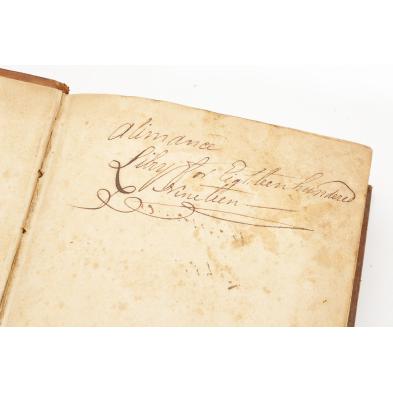 alimance
Liby for Eighteen hundred
Nineteen